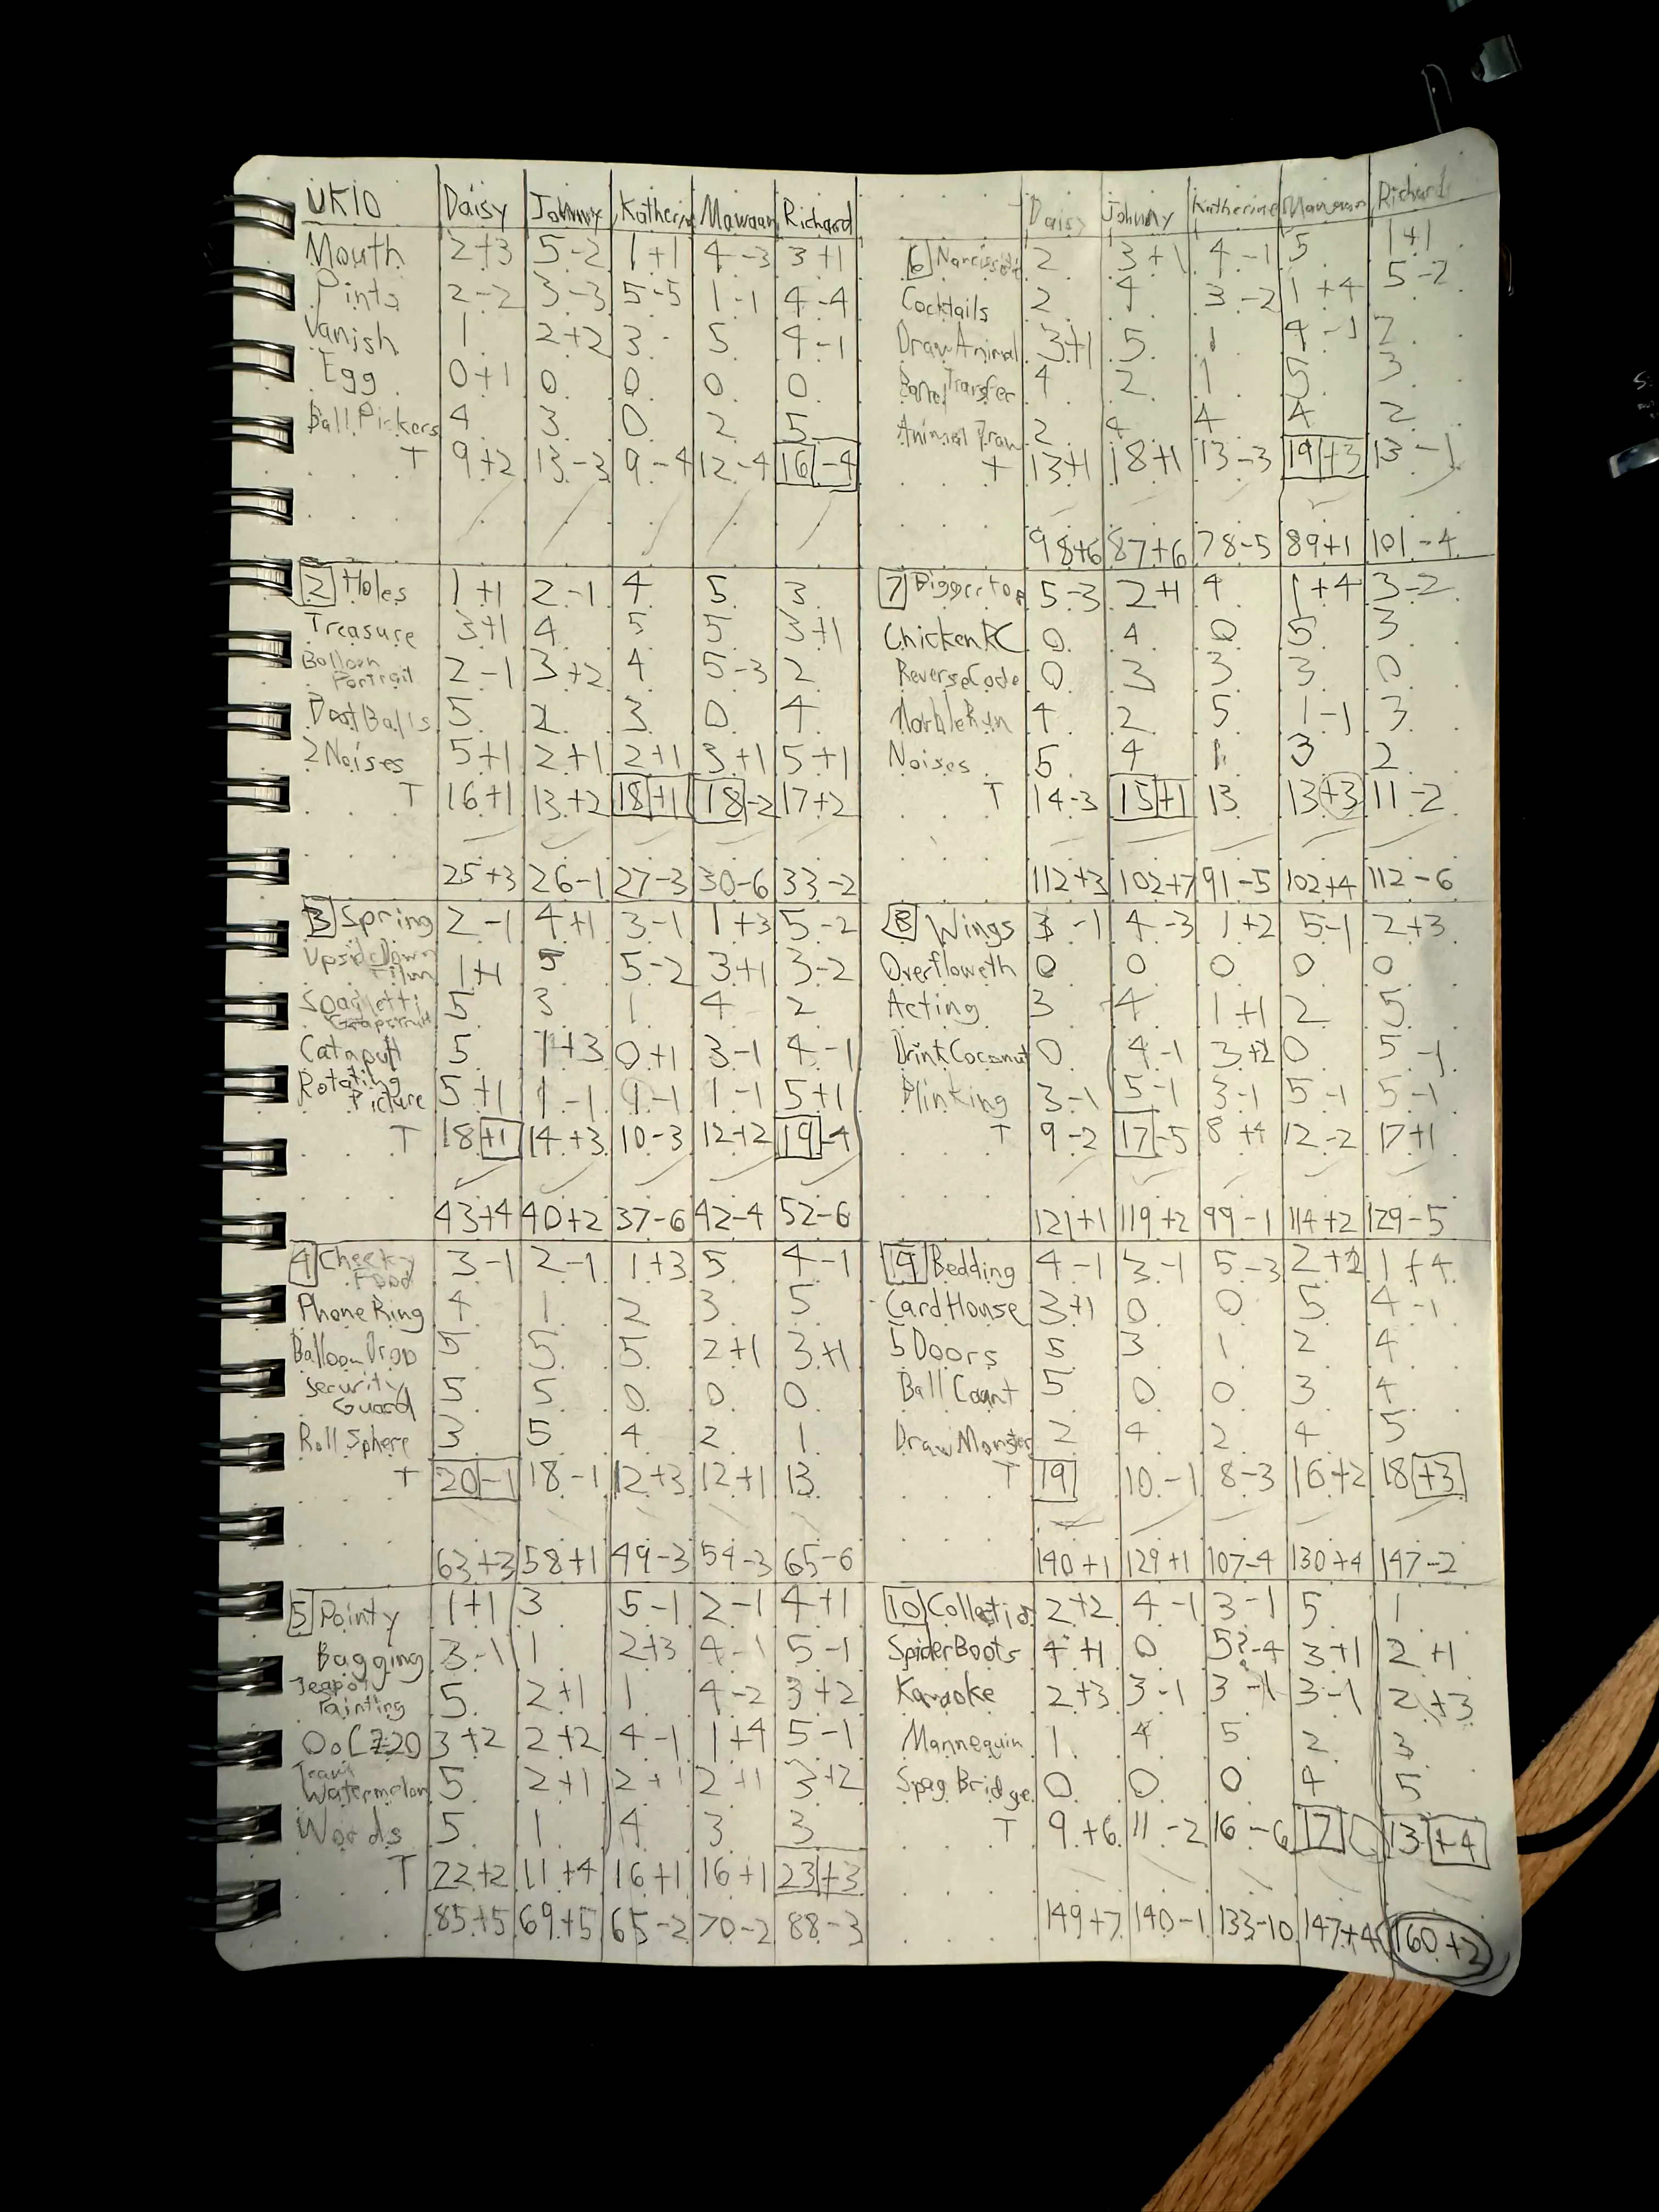 UK10 Daisy Johnny Katherin Mawaan Richard
Mouth 2+3 5-2 1+1 4-3 3+1
Pints 2-2 3-3 5-5 1-1 4-4
Vanish 1 2+2 3 5 4-1
Egg 0+1 0 0 0 0
Ball Pickers 4 3 0 2 5
T 9+2 13-3 9-4 12-4 16-4
2 Holes 1+1 2-1 4 5 3
Treasure 3+1 4 5 5 3+1
Balloon Portrait 2-1 3+2 4 5-3 2
Dost Balls 5 2 3 0 4
2 Noises 5+1 2+1 2+1 3+1 5+1
T 16+1 13+2 18+1 18-2 17+2
25+3 26-1 27-3 30-6 33-2
3 Spring 2-1 4+1 3-1 1+3 5-2
Upside Down Film 1+1 5 5-2 3+1 3-2
Spaghetti Grapefruit 5 3 1 4 2
Catapult 5 1+3 0+1 3-1 4-1
Rotating Picture 5+1 1-1 1-1 1-1 5+1
T 18+1 14+3 10-3 12+2 19-4
43+4 40+2 37-6 42-4 52-6
4 Cheeky Food 3-1 2-1 1+3 5 4-1
Phone Ring 4 1 2 3 5
Balloon Drop 5 5 5 2+1 3+1
Security Guard 5 5 0 0 0
Roll Sphere 3 5 4 2 1
T 20-1 18-1 12+3 12+1 13
63+3 58+1 49-3 54-3 65-6
5 Pointy 1+1 3 5-1 2-1 4+1
Bagging 3-1 1 2+3 4-1 5-1
Teapot Painting 5 2+1 1 4-2 3+2
3+2 2+2 4-1 1+4 5-1
Team Watermelon 5 2+1 2+1 2+1 3+2
Words 5 1 4 3 3
T 22+2 11+4 16+1 16+1 23+3
85+5 69+5 65-2 70-2 88-3
Daisy Johnny Katherine Mawaan Richard
6 Narcissist 2 3+1 4-1 5 1+1
Cocktails 2 4 3-2 1+4 5-2
Draw Animal 3+1 5 1 4-1 2
Transfer 4 2 1 5 3
Animal Draw 2 4 4 4 2
T 13+1 18+1 13-3 19+3 13-1
98+6 87+6 78-5 89+1 101-4
7 5-3 2+1 4 1+4 3-2
Chicken RC 0 4 0 5 3
Reverse Code 0 3 3 3 0
Marble Run 4 2 5 1-1 3
Noises 5 4 1 3 2
T 14-3 15+1 13 13+3 11-2
112+3 102+7 91-5 102+4 112-6
8 Wings 3-1 4-3 1+2 5-1 2+3
Overfloweth 0 0 0 0 0
Acting 3 4 1+1 2 5
Drink Coconut 0 4-1 3+2 0 5-1
Blinking 3-1 5-1 3-1 5-1 5-1
T 9-2 17-5 8+4 12-2 17+1
121+1 119+2 99-1 114+2 129-5
9 Bedding 4-1 3-1 5-3 2+2 1+4
Card House 3+1 0 0 5 4-1
5 Doors 5 3 1 2 4
Ball Count 5 0 0 3 4
Draw Monster 2 4 2 4 5
T 19 10-1 8-3 16+2 18+3
140+1 129+1 107-4 130+4 147-2
10 Collectio 2+2 4-1 3-1 5 1
Spider Boots 4+1 0 5?-4 3+1 2+1
Karaoke 2+3 3-1 3-1 3-1 2+3
Mannequin 1 4 5 2 3
Spag Bridge 0 0 0 4 5
T 9+6 11-2 16-6 17 0 13+4
149+7 140-1 133-10 147+4 160+2